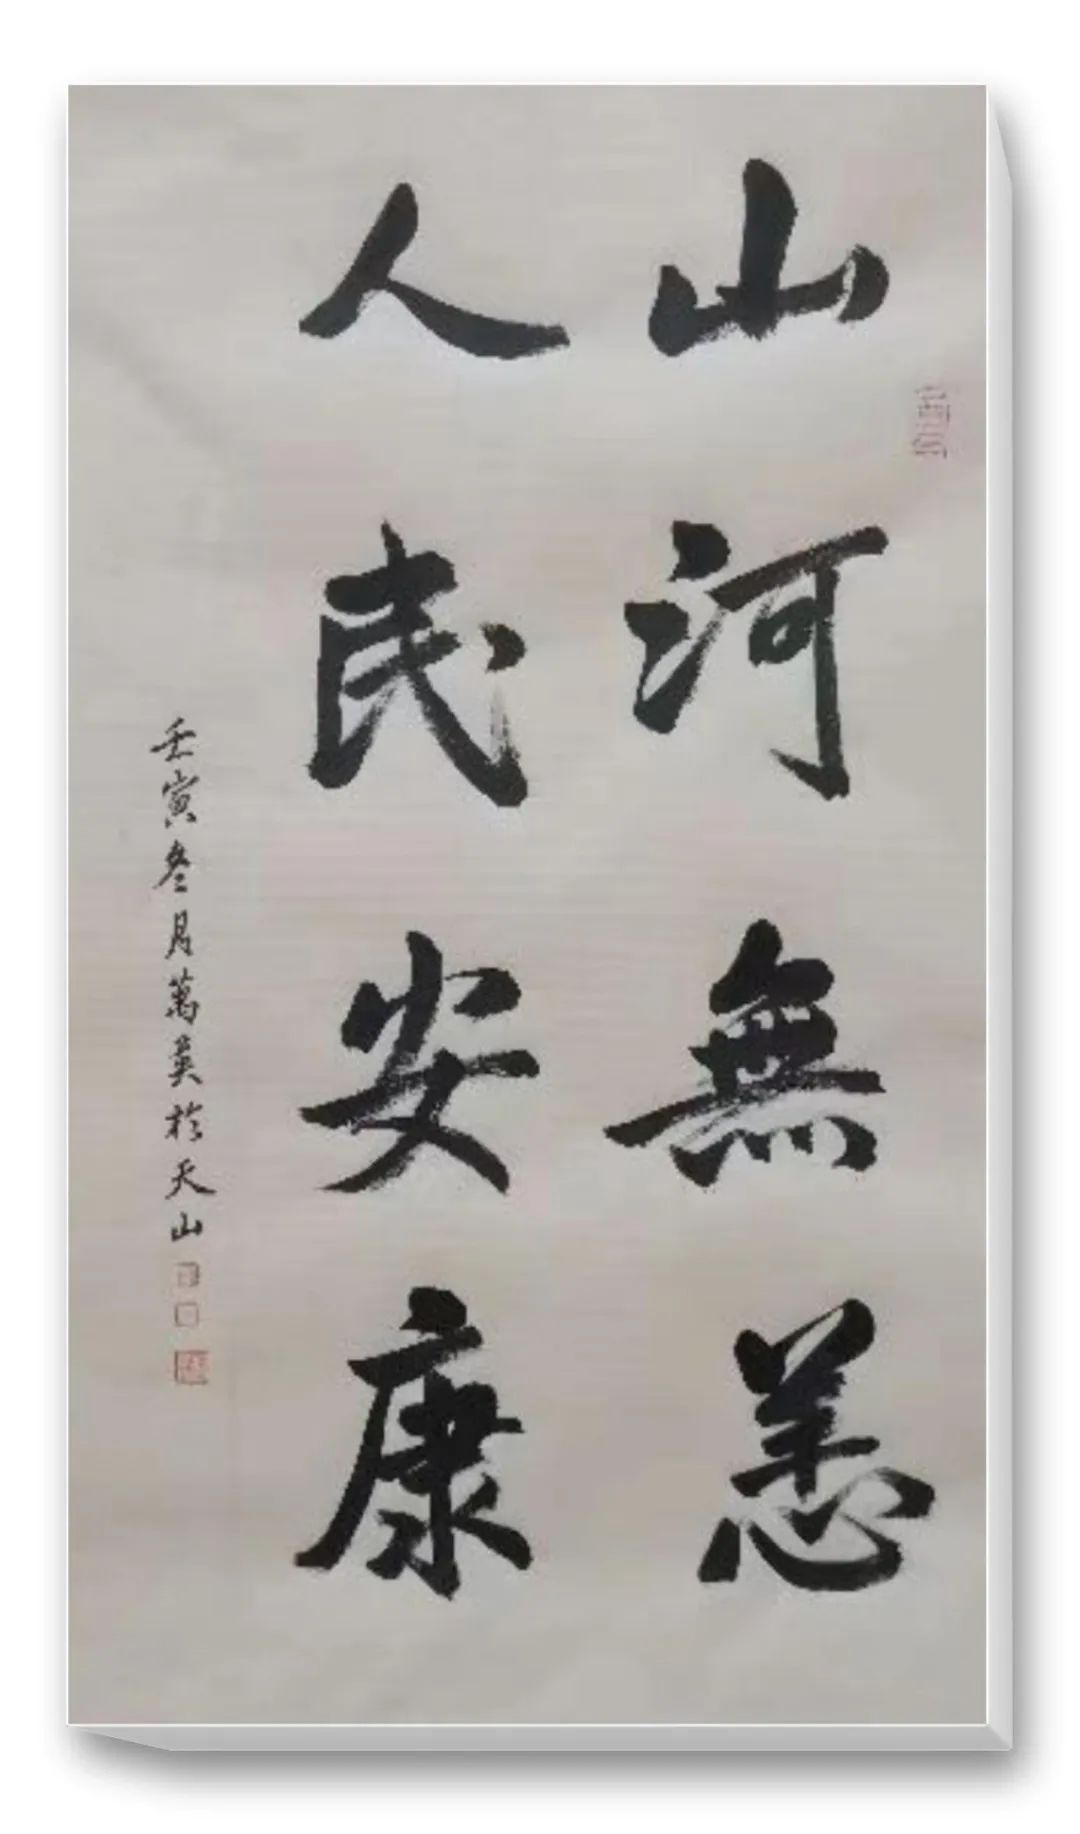 山河無恙
人民安康
壬寅叁月萬英於天山